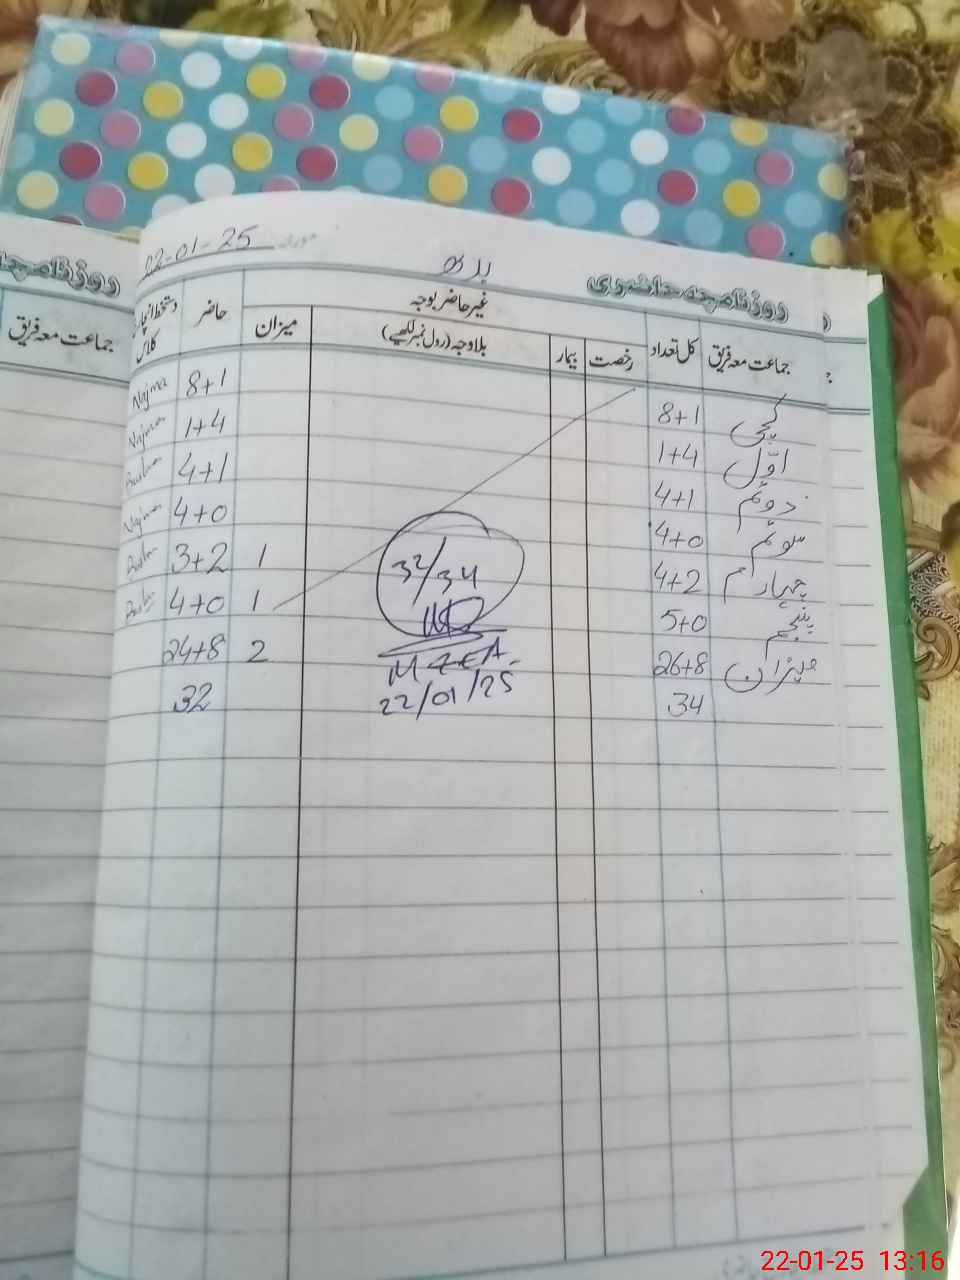 مورخہ 22-01-25
بدھ
روزنامچہ حاضری
روزنامچہ
جماعت معہ فریق
جماعت معہ فریق کل تعداد رخصت بیمار بلاوجہ (رول نمبر لکھیے) میزان حاضر
غیر حاضر بوجہ
دستخط انچارج کلاس
کچی 8+1 8+1 Najma
اوّل 1+4 1+4 Najma
دوئم 4+1 4+1
سوئم 4+0 4+0 Najma
چہارم 4+2 1 3+2
پنجم 5+0 1 4+0
میزان 26+8 2 24+8
34 32
32/34
MZEA
22/01/25
22-01-25 13:16